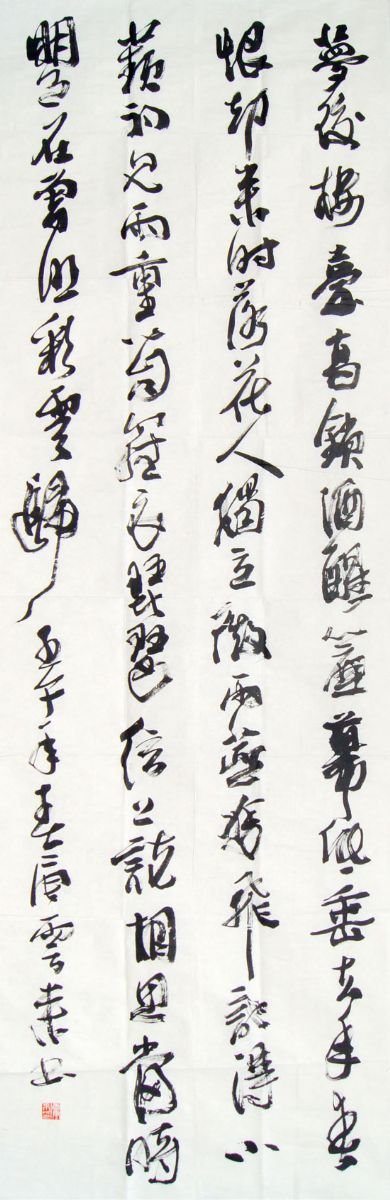 夢後樓臺高鎖酒醒簾幕低垂去年春
恨却來時落花人獨立微雨燕雙飛記得小
蘋初見兩重心字羅衣琵琶弦上說相思當時
明月在曾照彩雲歸 壬午年春 雲 書